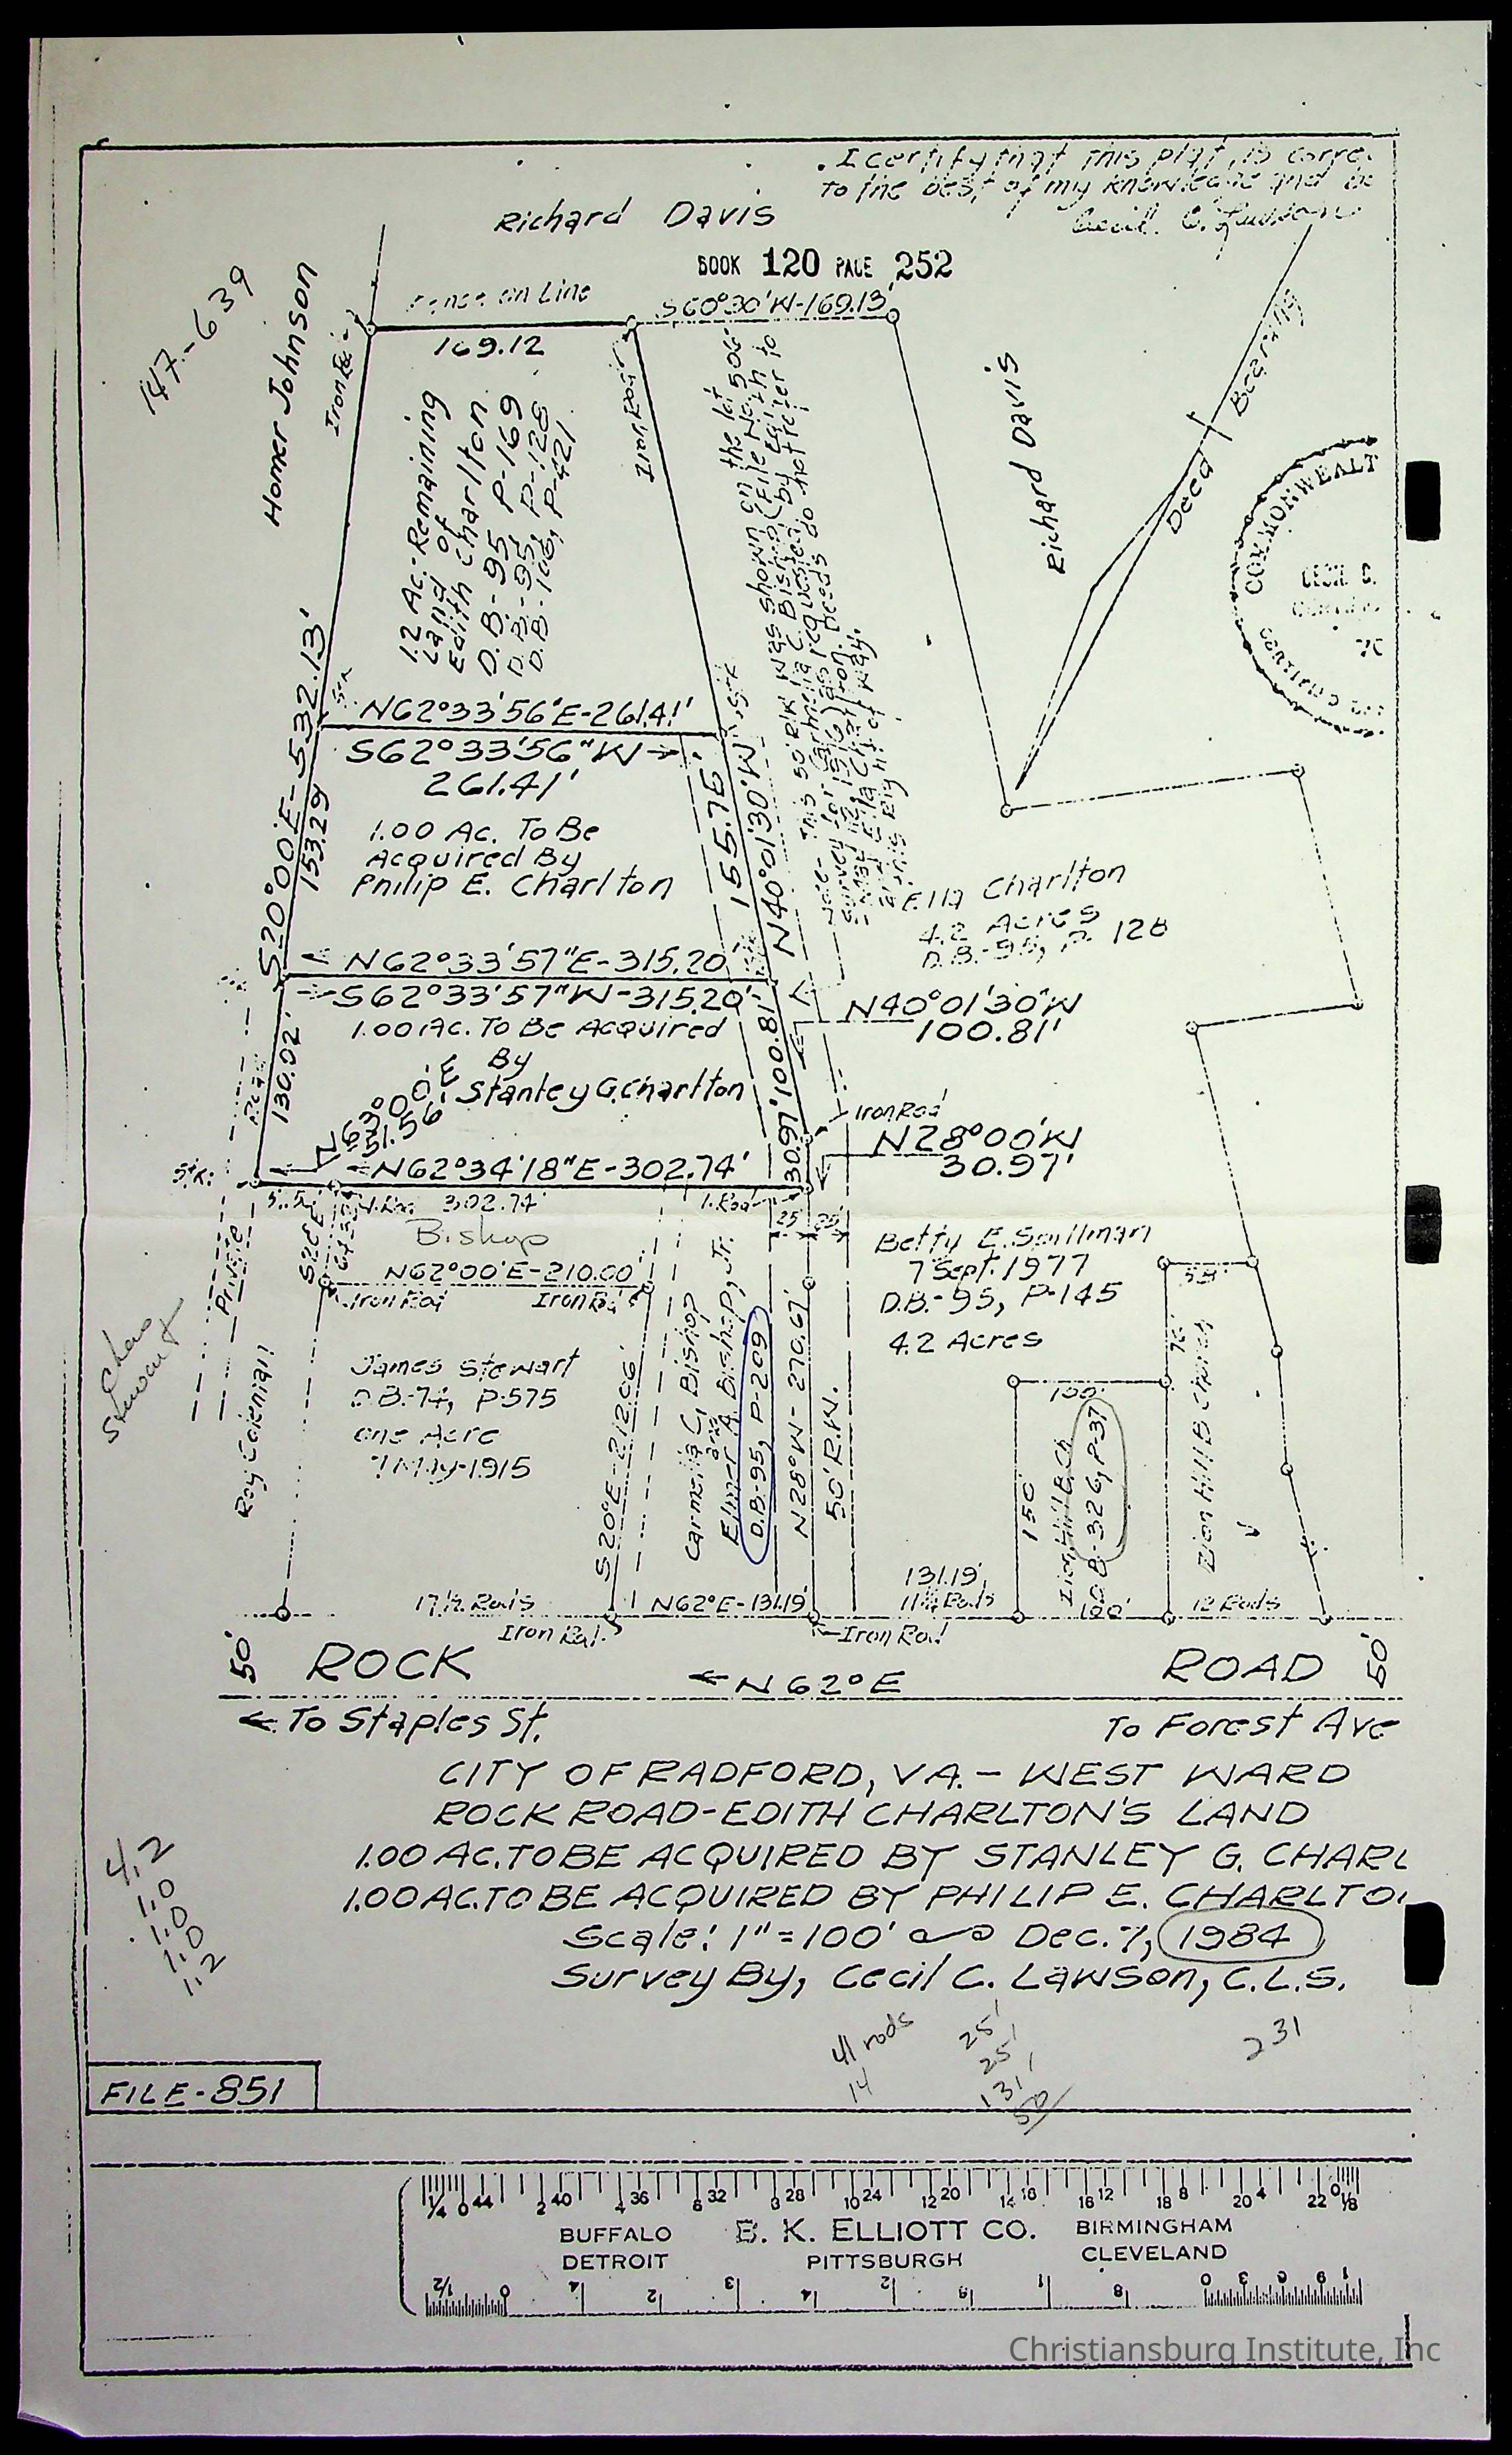 I certify that this plat is corre
to the best of my knowledge and be
Richard Davis
BOOK 120 PAGE 252
147-639
Homer Johnson
Fence on Line
S60°30'W-169.13'
169.12
Iron Rod
1.2 Ac.-Remaining
Land of
Edith Charlton
D.B.-95, P-169
D.B.-95, P-128
D.B.-106, P-421
Iron Rod
Richard Davis
Deed Bearing
COMMONWEALT
CECIL C.
CERTIFIED
S20°00'E-532.13'
Stk
N62°33'56"E-261.41'
S62°33'56"W→
261.41'
153.29
155.76'
N40°01'30"W
Note- This 50' R/W was shown on the lot
1.00 Ac. To Be
Acquired By
Philip E. Charlton
Ella Charlton
4.2 Acres
D.B.-95, P. 128
← N62°33'57"E-315.20'
→S62°33'57"W-315.20'
1.00 Ac. To Be Acquired
By
Stanley G. Charlton
N40°01'30"W
100.81'
130.02'
100.81'
N63°00'E
51.56'
Iron Rod
N28°00'W
30.97'
30.97'
Stk.
←N62°34'18"E-302.74'
302.74'
I. Rod
25' 25'
Bishop
N62°00'E-210.00'
Iron Rod Iron Rod
Private
Chas
Stewart
Betty E. Spillman
7 Sept. 1977
D.B.-95, P-145
4.2 Acres
58'
76'
James Stewart
D.B.-74, P-575
One Acre
7 May-1915
S20°E-212.06'
Carmelia C. Bishop
and
Elmer A. Bishop, Jr.
D.B.-95, P-209
N28°W-270.67'
50' R.W.
100'
150'
D.B.-326, P-37
Zion Hill B Church
17½ Rods
N62°E-131.19'
131.19'
100'
12 Rods
Iron Rod
Iron Rod
50' ROCK ←N62°E ROAD 50'
←To Staples St. To Forest Ave
CITY OF RADFORD, VA.-WEST WARD
ROCK ROAD-EDITH CHARLTON'S LAND
1.00 AC. TO BE ACQUIRED BY STANLEY G. CHARL
1.00 AC. TO BE ACQUIRED BY PHILIP E. CHARLTO
Scale: 1"=100' Dec. 7, 1984
Survey By, Cecil C. Lawson, C.L.S.
4.2
1.0
1.0
1.0
1.2
41 rods
14
25'
25'
131'
50
231
FILE-851
¼ 0 44 2 40 4 36 6 32 8 28 10 24 12 20 14 16 16 12 18 8 20 4 22 0 ⅛
BUFFALO B. K. ELLIOTT CO. BIRMINGHAM
DETROIT PITTSBURGH CLEVELAND
Christiansburg Institute, Inc